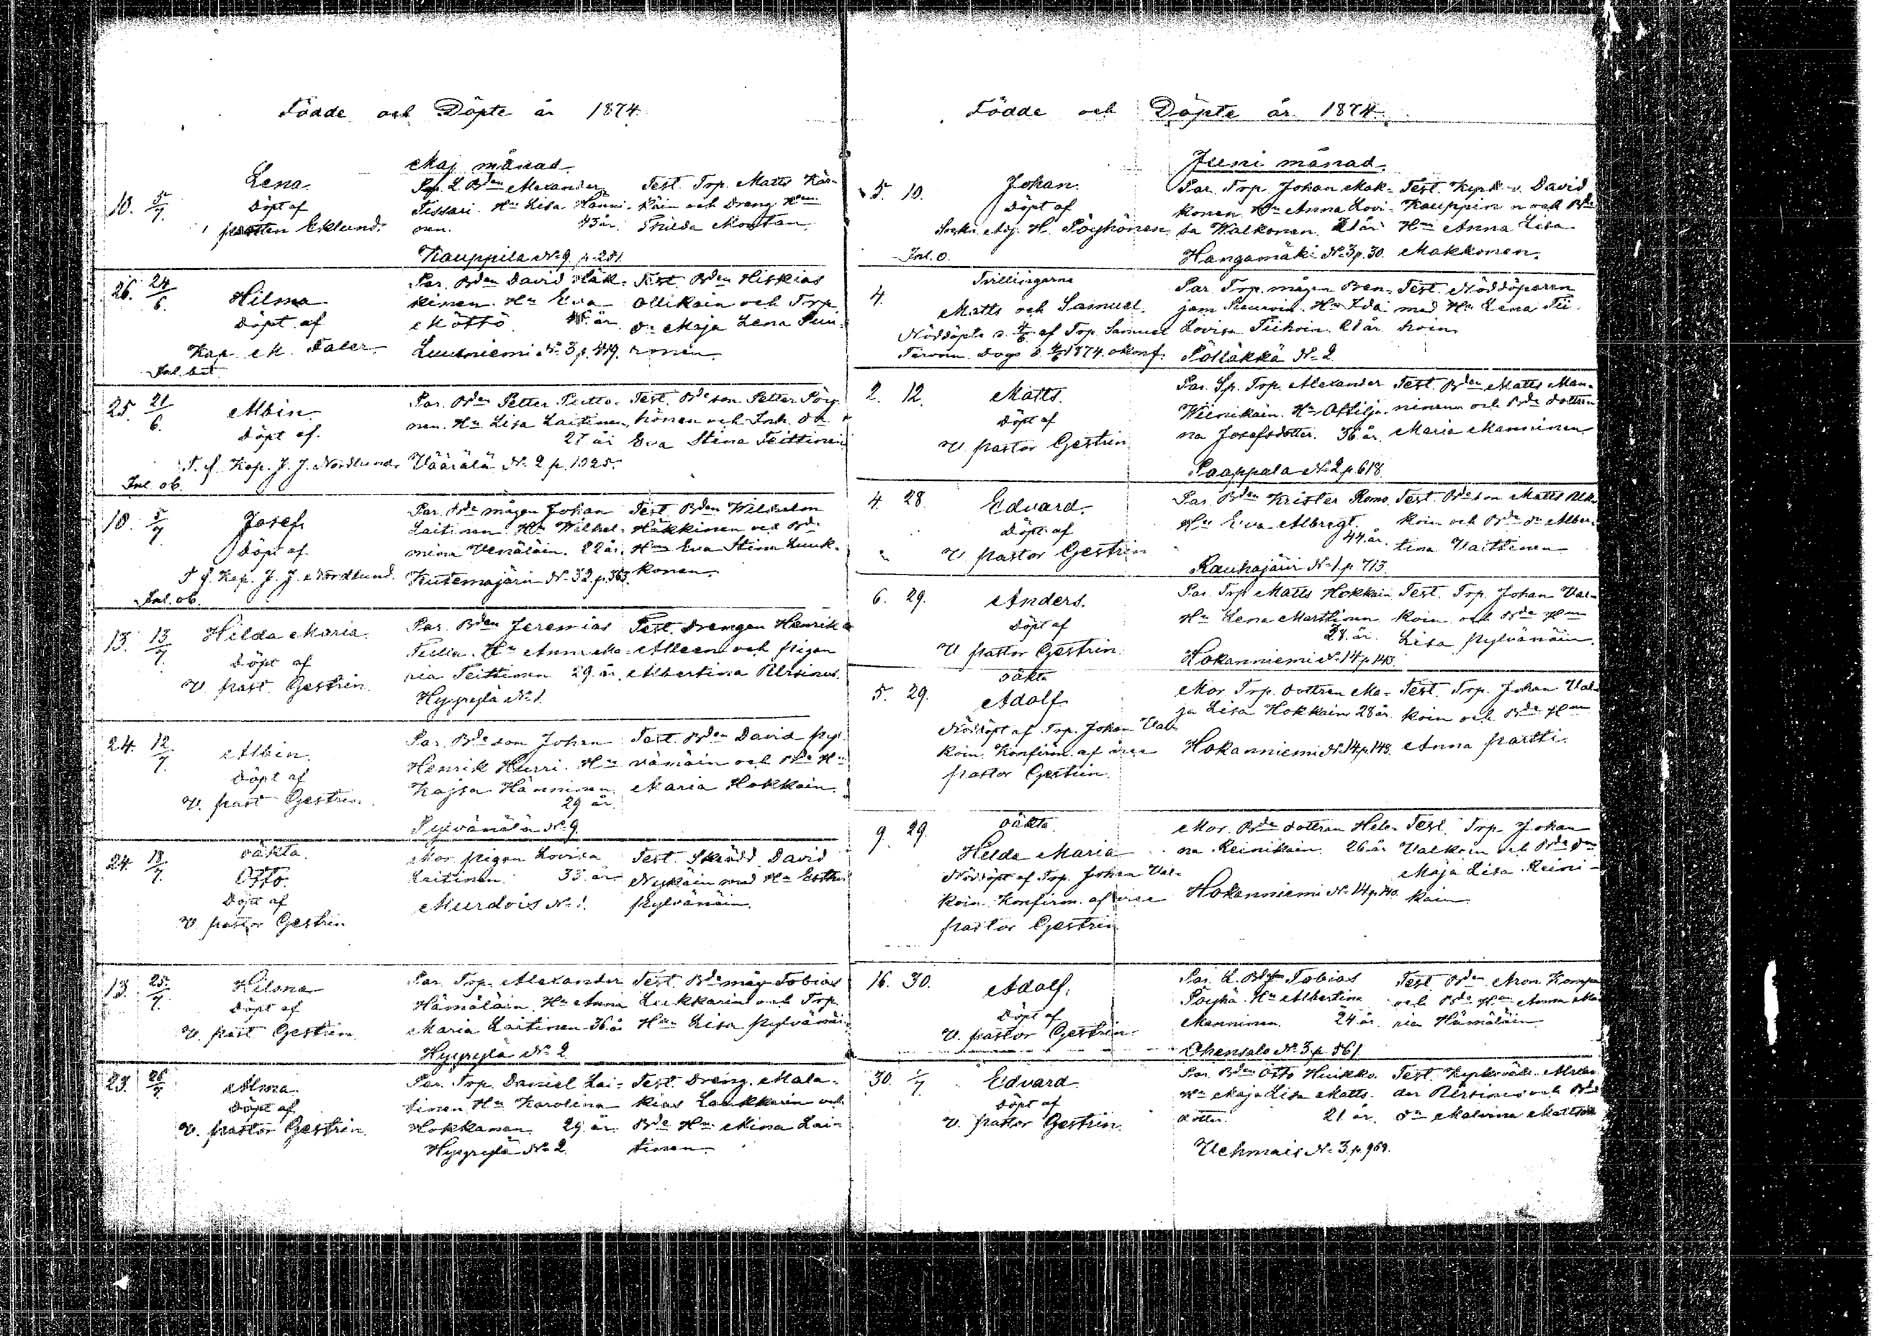 Födde och Döpte år 1874.
Maj månad
10. 5/7. Lena.
Döpt af
pastor Eklund.
Par. L. Bden Alexander
Tissari. Hu Lisa Hanni-
nen. 43 år.
Kauppila No 9 p. 281
Test. Trp. Matts Kär-
käin och Dräng Hun
26. 24/6. Hilma
Döpt af
Kap. M. Daler.
Par. Bden David Häk-
kinen. Hu Eva
Möttö. 45 år.
Luukniemi No 3 p. 419.
Test. Bden Hiskias
Ollikain och Trp.
dr Maja Lena Pun-
ronen
25. 21/6. Albin.
Döpt af.
T. f. Kap. J. J. Nordlund.
Inl. ob.
Par. Bden Petter Putto-
nen. Hu Lisa Laitinen
27 år
Väärälä No 2 p. 1025.
Test. Bdeson Petter Pöy-
hönen och Inh. dr
Eva Stina Teittinen
10. 5/7 Josef.
Döpt af.
T. f. Kap. J. J. Nordlund.
Inl. ob.
Par. Bde mågen Johan
Laitinen Hu Wilhel-
mina Venäläin. 22 år.
Kutemajärvi No 32 p. 363.
Test. Bden Wilhelm
Häkkinen och Bde
Hun Eva Stina Luuk-
konen.
13. 13/7. Hilda Maria.
Döpt af
V. past. Gestrin.
Par. Bden Jeremias
Hu Anna Ma-
ria Teittinen 29 år.
Hyyrylä No 1.
Test. Drengen Henrik
och pigan
Albertina Ursinus.
24. 12/7. Albin.
Döpt af
V. past Gestrin.
Par. Bdeson Johan
Henrik Hurri. Hu
Kajsa Hänninen
29 år.
Pylvänälä No 9.
Test. Bden David Pyl-
vänäin och Bde Hu
Maria Hokkain.
24. 12/7. oäkta.
Otto.
Döpt af
V. pastor Gestrin
Mor pigan Lovisa
Laitinen. 33 år
Murdois No 1.
Test. Skrädd. David
Nykäin med Hu Esther
Pylvänäin.
13. 25/7. Hilma
Döpt af
V. past Gestrin
Par. Trp. Alexander
Hämäläin. Hu Anna
Maria Laitinen 36 år
Hyyrylä No 2
Test. Bde måg Tobias
Lukkarin och Trp.
Hun Lisa Pylvänäin
23. 26/7. Alma
Döpt af
V. pastor Gestrin.
Par. Trp. Daniel Lai-
tinen Hu Karolina
Hokkanen 29 år.
Hyyrylä No 2.
Test. Dräng. Mala-
kias Laukkarin och
Bde Hu Mina Lai-
tinen
Födde och Döpte år 1874.
Juni månad.
5. 10. Johan.
Döpt af
Adj. H. Pöyhönen
Inl. o.
Par. Trp. Johan Mak-
konen Hu Anna Lovi-
sa Walkonen. 21 år
Hangamäki No 3 p. 30.
Test. Kyrk v. David
Kauppinen och Bde
Hun Anna Lisa
Makkonen.
4. Tvillingarne
Matts och Samuel.
Nöddöpte d. 4/6 af Trp. Samuel
Par. Trp. mågen Ben-
jam Hu Ida
Lovisa Tiihoin. 21 år
Pölläkkä No 2
Test. Nöddöparen
med Hu Lena Tii-
hoin
2. 12. Matts.
Döpt af
V. pastor Gestrin
Par. Sp. Trp. Alexander
Wiinikain. Hu Ottilja-
na Josefsdotter. 36 år.
Paappala No 2 p 618
Test. Bden Matts Man-
ninen och Bde dottern
Maria Manninen
4. 28. Edvard.
Döpt af
V. pastor Gestrin
Par. Bden Krister Romo
Hu Eva Albregt.
44 år
Rauhajärvi No 1 p 713.
Test. Bdeson Matts
koin och Bde dr Alber-
tina Vaittinen
6. 29. Anders.
Döpt af
V. pastor Gestrin
Par. Trp Matts Hokkain
Hu Lena Marttinen
28 år.
Hokanniemi No 14 p. 143.
Test. Trp. Johan Val-
koin och Bde Hun
Lisa Pylvänäin.
5. 29. oäkta
Adolf
Nöddöpt af Trp. Johan Val-
koin. Konfirm. af vice
pastor Gestrin.
Mor Trp. dottren Ma-
ja Lisa Hokkain 28 år.
Hokanniemi No 14 p. 143.
Test. Trp. Johan Val-
koin och Bde Hun
Anna Partti.
9. 29. oäkta.
Hilda Maria
Nöddöpt af Trp. Johan Val-
koin. Konfirm. af vice
pastor Gestrin
Mor. Bde dottran Hele-
na Reinikain 26 år
Hokanniemi No 14 p. 140.
Test. Trp. Johan
Valkoin och Bde dr
Maja Lisa Reini-
kain
16. 30. Adolf.
Döpt af
V. pastor Gestrin.
Par. L. Bden Tobias
Pöyhö. Hu Albertina
Manninen. 24 år.
Ohensalo No 3 p. 561.
Test. Bden Aron Kompa
och Bde Hun Anna Ma-
ria Hämäläin
30. 1/7 Edvard
Döpt af
V. pastor Gestrin.
Par. Bden Otto Huikko.
Hu Maja Lisa Matts-
dotter. 21 år.
Uchmais No 3. p. 969.
Test. Kyrkovärd.
der Ursinus och Bde
dr Malvina